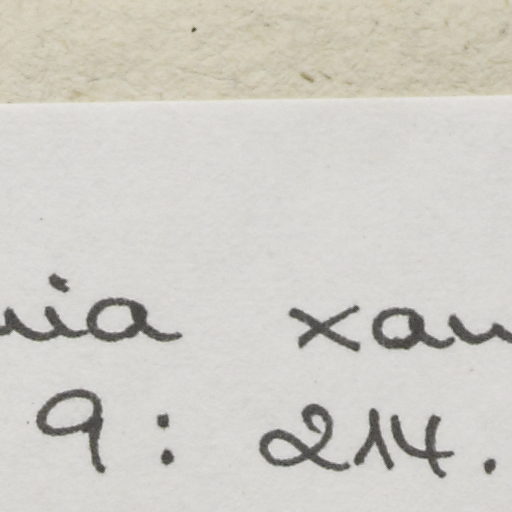 nia xan
9: 214.